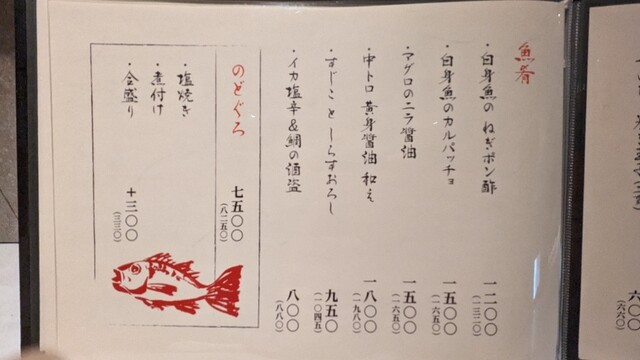 魚肴
・白身魚の ねぎポン酢 一二〇〇
(一三二〇)
・白身魚のカルパッチョ 一五〇〇
(一六五〇)
・マグロのニラ醤油 一五〇〇
(一六五〇)
・中トロ 黄身醤油 和え 一八〇〇
(一九八〇)
・すじことしらすおろし 九五〇
(一〇四五)
・イカ塩辛&鯛の酒盗 八〇〇
(八八〇)
のどぐろ 七五〇〇
(八二五〇)
・塩焼き
・煮付け
・会盛り +三〇〇
(三三〇)
六〇〇
(六六〇)